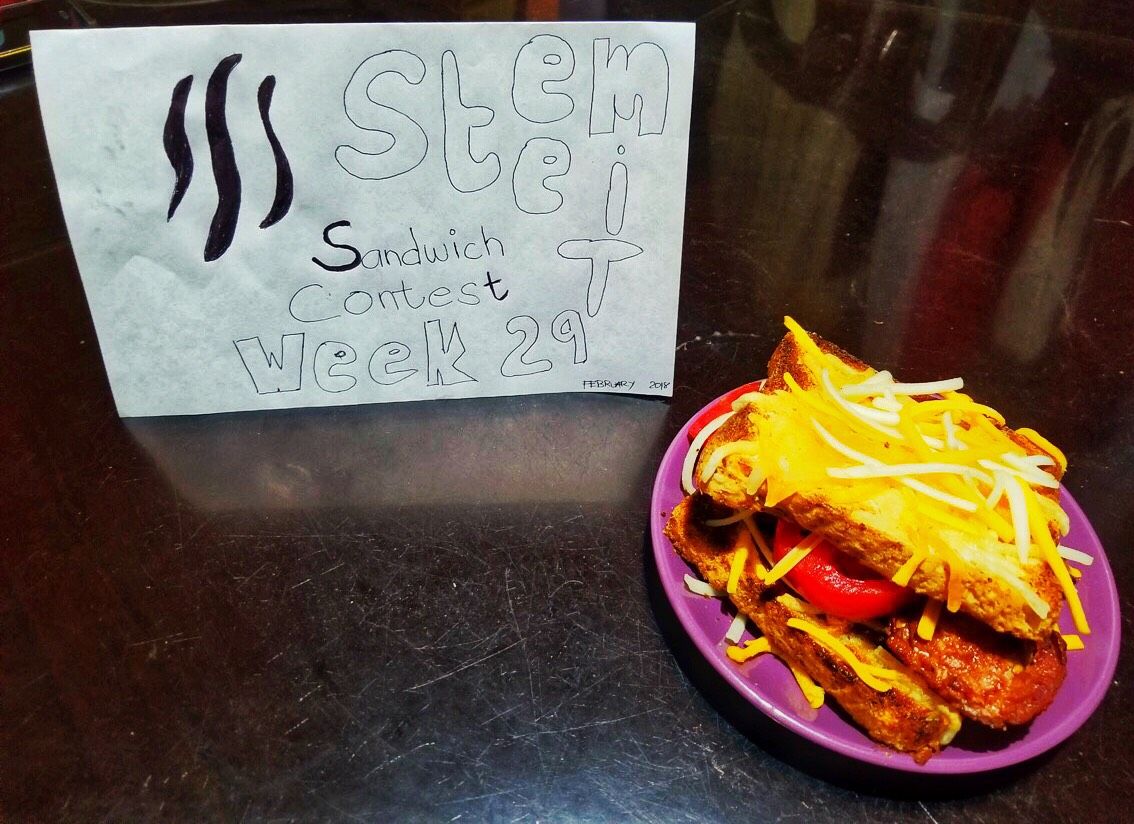 Steem
eiT
Sandwich
Contest
Week 29
FEBRUARY 2018